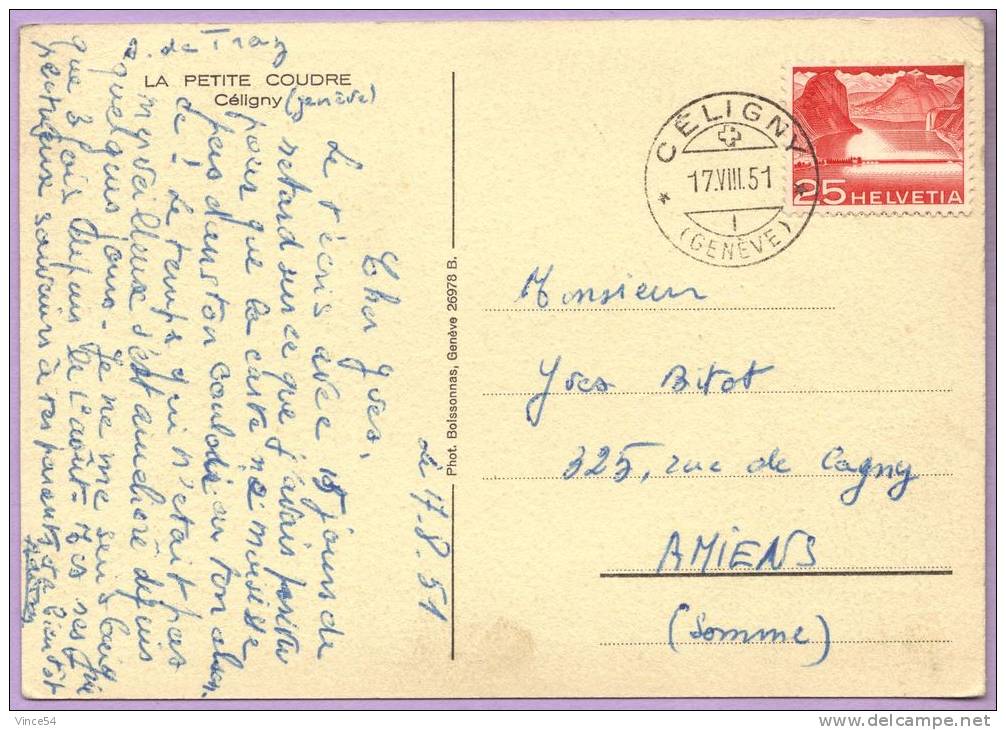 LA PETITE COUDRE
Céligny (genève)
CÉLIGNY
17.VIII.51
1
(GENÈVE)
25 HELVETIA
Phot. Boissonnas, Genève 26978 B.
Monsieur
Yves Bitot
325, rue de Cagny
AMIENS
(Somme)
Le 17.8.51
Cher Yves,
Je t'écris avec 15 jours de
retard sur ce que j'avais
pour que la carte ne moisisse
pas dans ton ton absen
ce! Le temps qui n'était pas
merveilleux s'est amélioré depuis
quelques jours. Je ne me suis
que 3 fois depuis le août. Mes
souvenirs à tes parents.
Vince54
www.delcampe.net